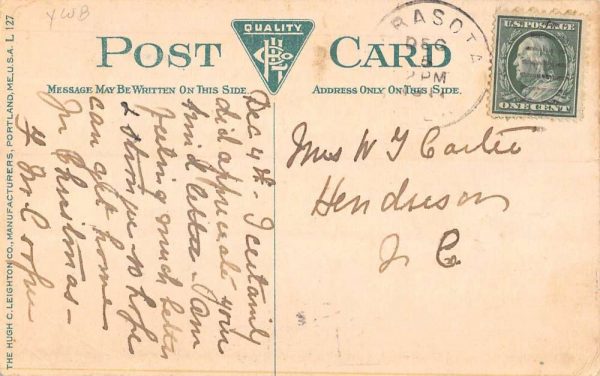 YWB
QUALITY
POST CARD
MESSAGE MAY BE WRITTEN ON THIS SIDE
ADDRESS ONLY ON THIS SIDE.
RASOTA
DEC
5
2PM
U.S. POSTAGE
ONE CENT
Dec 4th - I certainly
did appreciate your
kind letter I am
feeling much better
& stronger & hope
can get home
for Christmas -
Mrs W J Carter
Henderson
N C
THE HUGH C. LEIGHTON CO., MANUFACTURERS, PORTLAND, ME. U.S.A. L 127